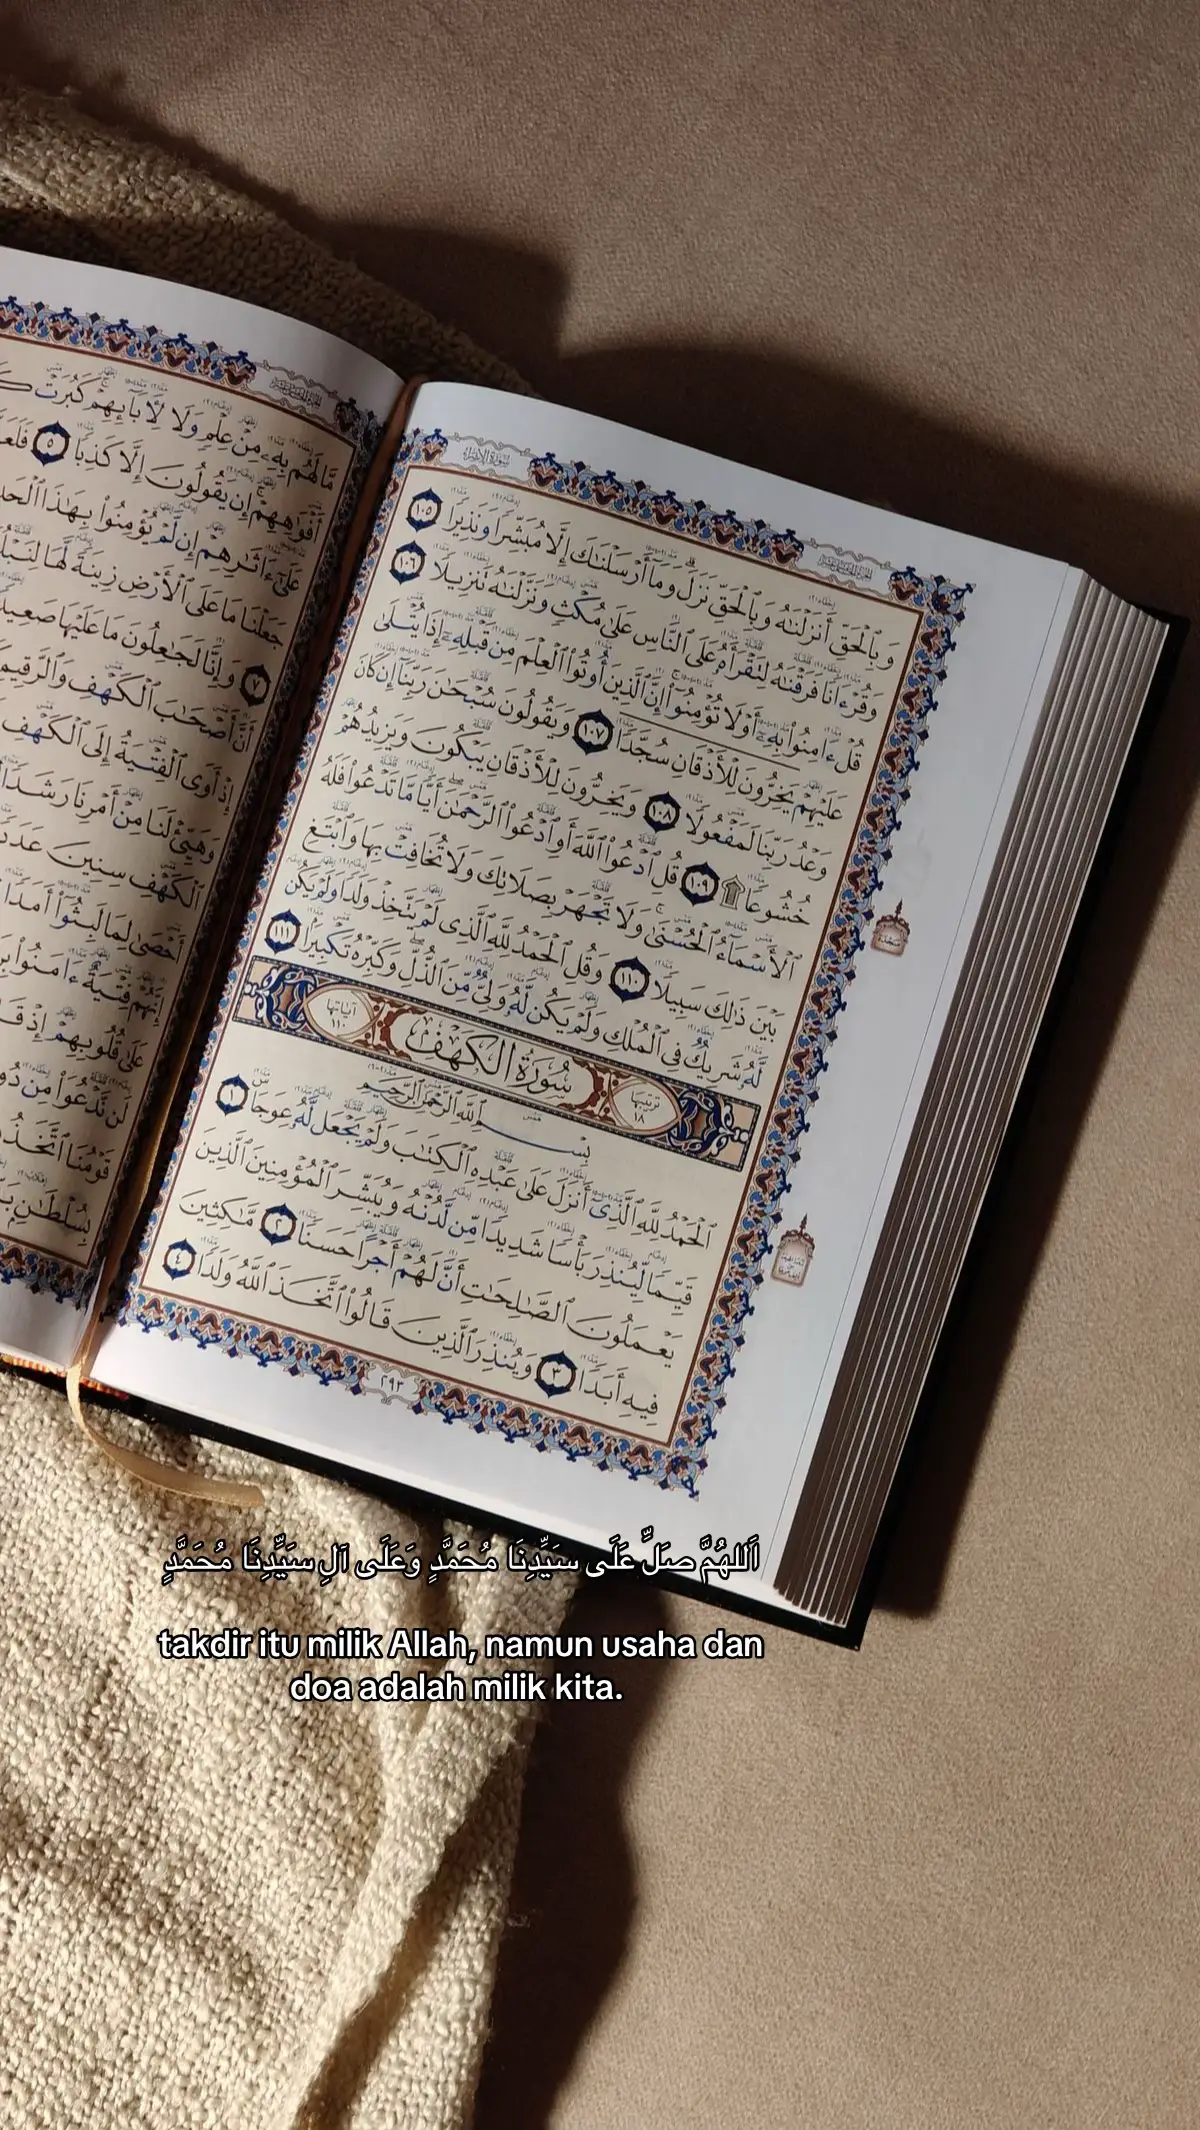 سُورَةُ الإِسْرَاءِ
وَبِالْحَقِّ أَنزَلْنَٰهُ وَبِالْحَقِّ نَزَلَ وَمَآ أَرْسَلْنَٰكَ إِلَّا مُبَشِّرًا وَنَذِيرًا ١٠٥
وَقُرْءَانًا فَرَقْنَٰهُ لِتَقْرَأَهُۥ عَلَى ٱلنَّاسِ عَلَىٰ مُكْثٍ وَنَزَّلْنَٰهُ تَنزِيلًا ١٠٦
قُلْ ءَامِنُوا۟ بِهِۦٓ أَوْ لَا تُؤْمِنُوٓا۟ إِنَّ ٱلَّذِينَ أُوتُوا۟ ٱلْعِلْمَ مِن قَبْلِهِۦٓ إِذَا يُتْلَىٰ
عَلَيْهِمْ يَخِرُّونَ لِلْأَذْقَانِ سُجَّدًا ١٠٧ وَيَقُولُونَ سُبْحَٰنَ رَبِّنَآ إِن كَانَ
وَعْدُ رَبِّنَا لَمَفْعُولًا ١٠٨ وَيَخِرُّونَ لِلْأَذْقَانِ يَبْكُونَ وَيَزِيدُهُمْ
خُشُوعًا ۩ ١٠٩ قُلِ ٱدْعُوا۟ ٱللَّهَ أَوِ ٱدْعُوا۟ ٱلرَّحْمَٰنَ أَيًّا مَّا تَدْعُوا۟ فَلَهُ
ٱلْأَسْمَآءُ ٱلْحُسْنَىٰ وَلَا تَجْهَرْ بِصَلَاتِكَ وَلَا تُخَافِتْ بِهَا وَٱبْتَغِ
بَيْنَ ذَٰلِكَ سَبِيلًا ١١٠ وَقُلِ ٱلْحَمْدُ لِلَّهِ ٱلَّذِى لَمْ يَتَّخِذْ وَلَدًا وَلَمْ يَكُن
لَّهُۥ شَرِيكٌ فِى ٱلْمُلْكِ وَلَمْ يَكُن لَّهُۥ وَلِىٌّ مِّنَ ٱلذُّلِّ وَكَبِّرْهُ تَكْبِيرًا ١١١
ترتيبها ١٨ سُورَةُ الكَهْفِ آياتها ١١٠
بِسْمِ ٱللَّهِ ٱلرَّحْمَٰنِ ٱلرَّحِيمِ
ٱلْحَمْدُ لِلَّهِ ٱلَّذِىٓ أَنزَلَ عَلَىٰ عَبْدِهِ ٱلْكِتَٰبَ وَلَمْ يَجْعَل لَّهُۥ عِوَجَا ١
قَيِّمًا لِّيُنذِرَ بَأْسًا شَدِيدًا مِّن لَّدُنْهُ وَيُبَشِّرَ ٱلْمُؤْمِنِينَ ٱلَّذِينَ
يَعْمَلُونَ ٱلصَّٰلِحَٰتِ أَنَّ لَهُمْ أَجْرًا حَسَنًا ٢ مَّٰكِثِينَ
فِيهِ أَبَدًا ٣ وَيُنذِرَ ٱلَّذِينَ قَالُوا۟ ٱتَّخَذَ ٱللَّهُ وَلَدًا ٤
٢٩٣
مَّا لَهُم بِهِۦ مِنْ عِلْمٍ وَلَا لِأَبَآئِهِمْ كَبُرَتْ
أَفْوَٰهِهِمْ إِن يَقُولُونَ إِلَّا كَذِبًا ٥
عَلَىٰٓ ءَاثَٰرِهِمْ إِن لَّمْ يُؤْمِنُوا۟ بِهَٰذَا
جَعَلْنَا مَا عَلَى ٱلْأَرْضِ زِينَةً لَّهَا
٧ وَإِنَّا لَجَٰعِلُونَ مَا عَلَيْهَا
أَنَّ أَصْحَٰبَ ٱلْكَهْفِ وَٱلرَّقِيمِ
إِذْ أَوَى ٱلْفِتْيَةُ إِلَى ٱلْكَهْفِ
وَهَيِّئْ لَنَا مِنْ أَمْرِنَا رَشَدًا
ٱلْكَهْفِ سِنِينَ عَدَدًا
أَحْصَىٰ لِمَا لَبِثُوٓا۟ أَمَدًا
إِنَّهُمْ فِتْيَةٌ ءَامَنُوا۟
عَلَىٰ قُلُوبِهِمْ إِذْ
لَن نَّدْعُوَا۟ مِن
قَوْمُنَا ٱتَّخَذُ
بِسُلْطَٰنٍ
اَللهُمَّ صَلِّ عَلَى سَيِّدِنَا مُحَمَّدٍ وَعَلَى اَلِ سَيِّدِنَا مُحَمَّدٍ
takdir itu milik Allah, namun usaha dan
doa adalah milik kita.